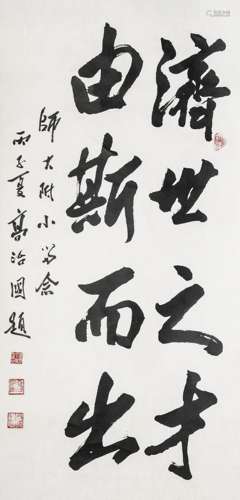 濟世之才
由斯而出
師大附小留念
丙子夏葛治國題